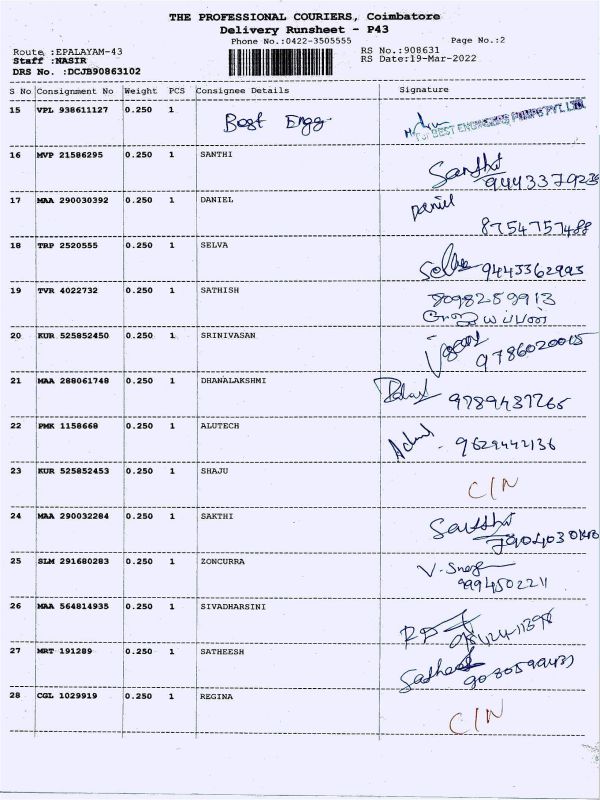 THE PROFESSIONAL COURIERS, Coimbatore
Delivery Runsheet - P43
Phone No.:0422-3505555 Page No.:2
Route :EPALAYAM-43 RS No.:908631
Staff :NASIR RS Date:19-Mar-2022
DRS No. :DCJB90863102
S No Consignment No Weight PCS Consignee Details Signature
15 VPL 938611127 0.250 1 Best Engg For BEST ENGINEERS PUMPS PVT. LTD.
16 MVP 21586295 0.250 1 SANTHI Santhi
9443379236
17 MAA 290030392 0.250 1 DANIEL Daniel
8754757488
18 TRP 2520555 0.250 1 SELVA 9443362993
19 TVR 4022732 0.250 1 SATHISH 8098259913
20 KUR 525852450 0.250 1 SRINIVASAN 9786020015
21 MAA 288061748 0.250 1 DHANALAKSHMI 9789437265
22 PMK 1158668 0.250 1 ALUTECH 9629442136
23 KUR 525852453 0.250 1 SHAJU C/N
24 MAA 290032284 0.250 1 SAKTHI
25 SLM 291680283 0.250 1 ZONCURRA
9994502211
26 MAA 564814935 0.250 1 SIVADHARSINI
27 MRT 191289 0.250 1 SATHEESH Satheesh
28 CGL 1029919 0.250 1 REGINA C/N